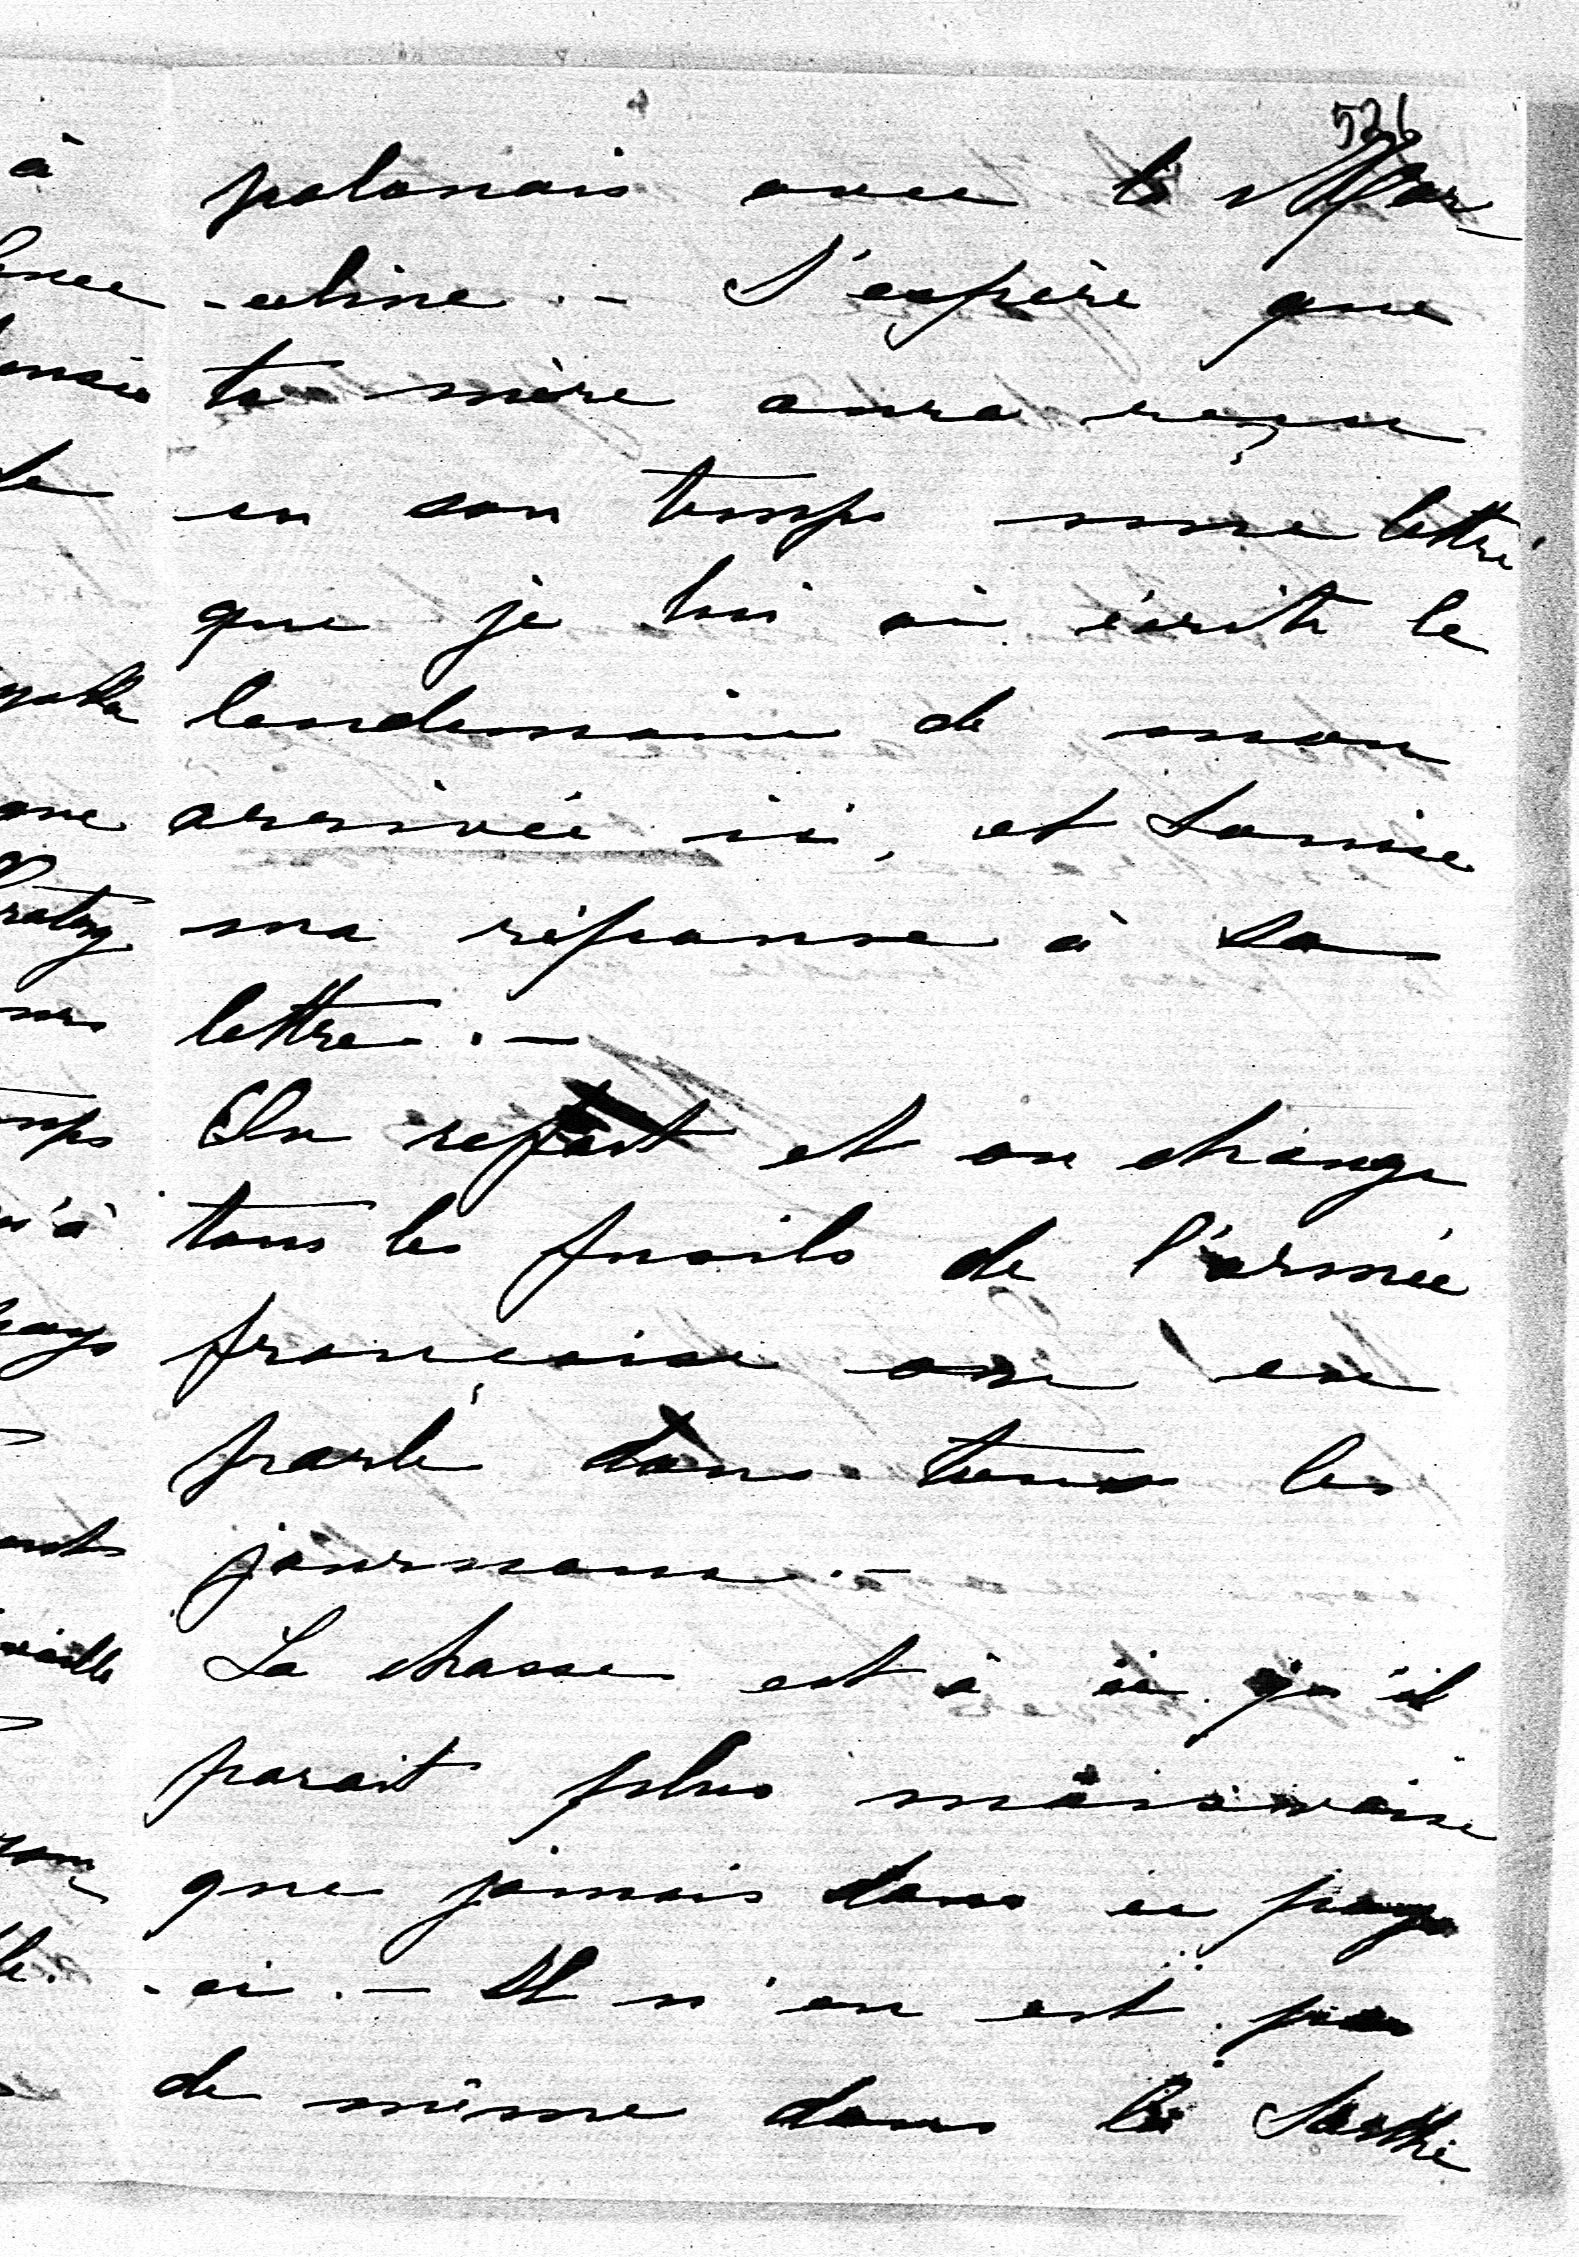 526
polonais avec la Mar-
-celine. - J'espère que
ta mère aura reçu
en son temps une lettre
que je lui ai écrite le
lendemain de mon
arrivée ici, et Louise
ma réponse à sa
lettre. -
On refait et on change
tous les fusils de l'armée
française on en
parle dans tous les
journaux. -
La chasse est à ce qu'il
parait plus mauvaise
que jamais dans ce pays
-ci. - Il n'en est pas
de même dans la Sarthe